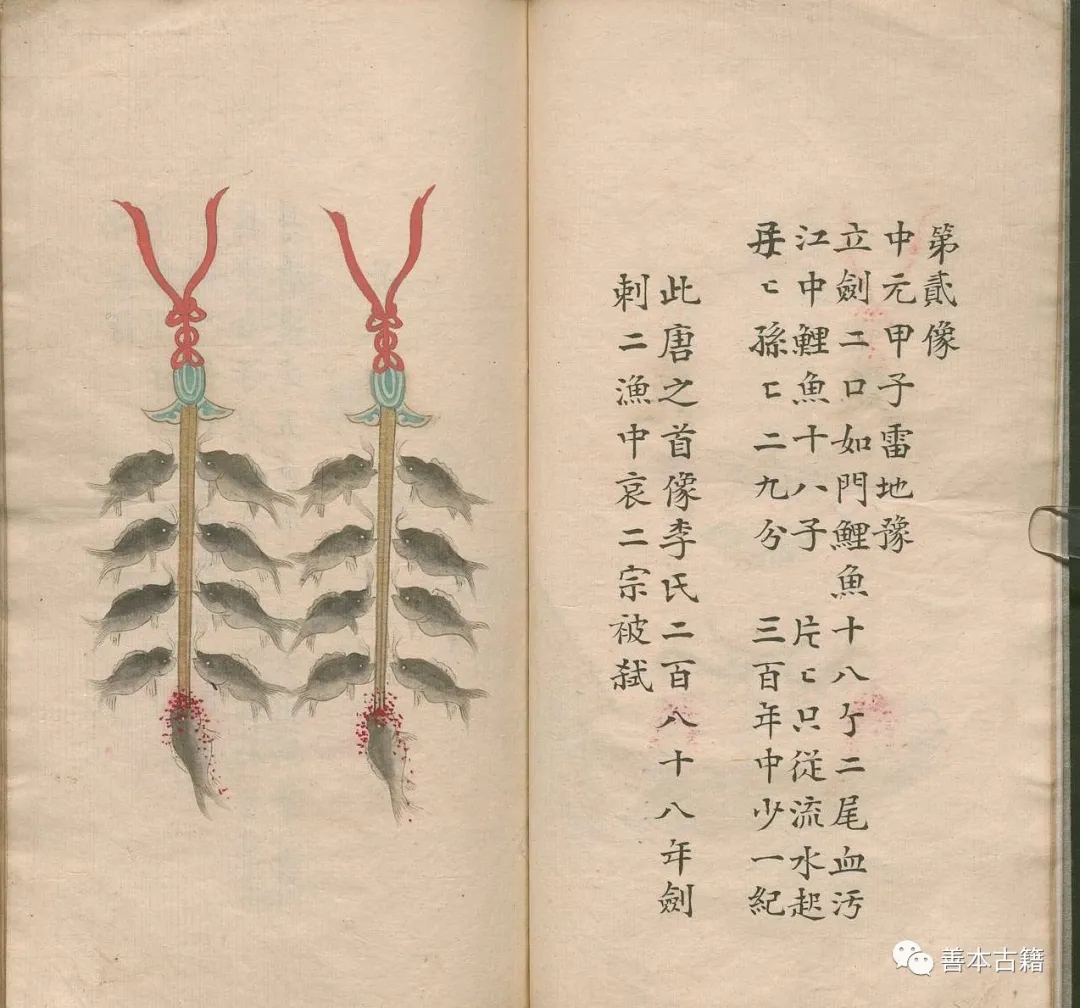 第貳像
中元甲子雷地豫
立劍二口如門鯉魚十八亇二尾血污
江中鯉魚十八子　片〻只從流水起
〻孫〻二九分　三百年中少一紀
此唐之首像李氏二百八十八年劍
刺二漁中哀二宗被弒
善本古籍